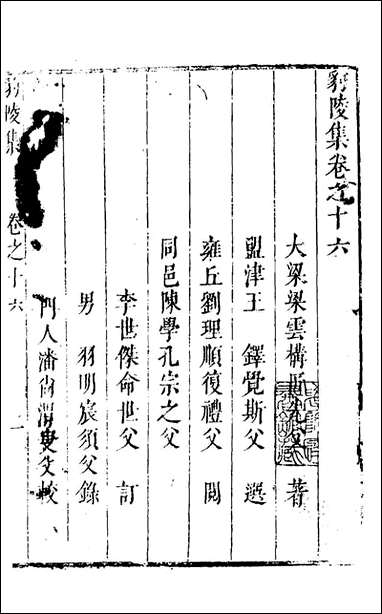 豹陵集卷之十六
大梁梁雲構匠先父 著
盟津王 鐸覺斯父 選
雍丘劉理順復禮父 閱
同邑陳學孔宗之父
李世傑命世父 訂
男 羽明宸須父錄
門人潘尚渭叟父校
豹陵集 卷之十六 一